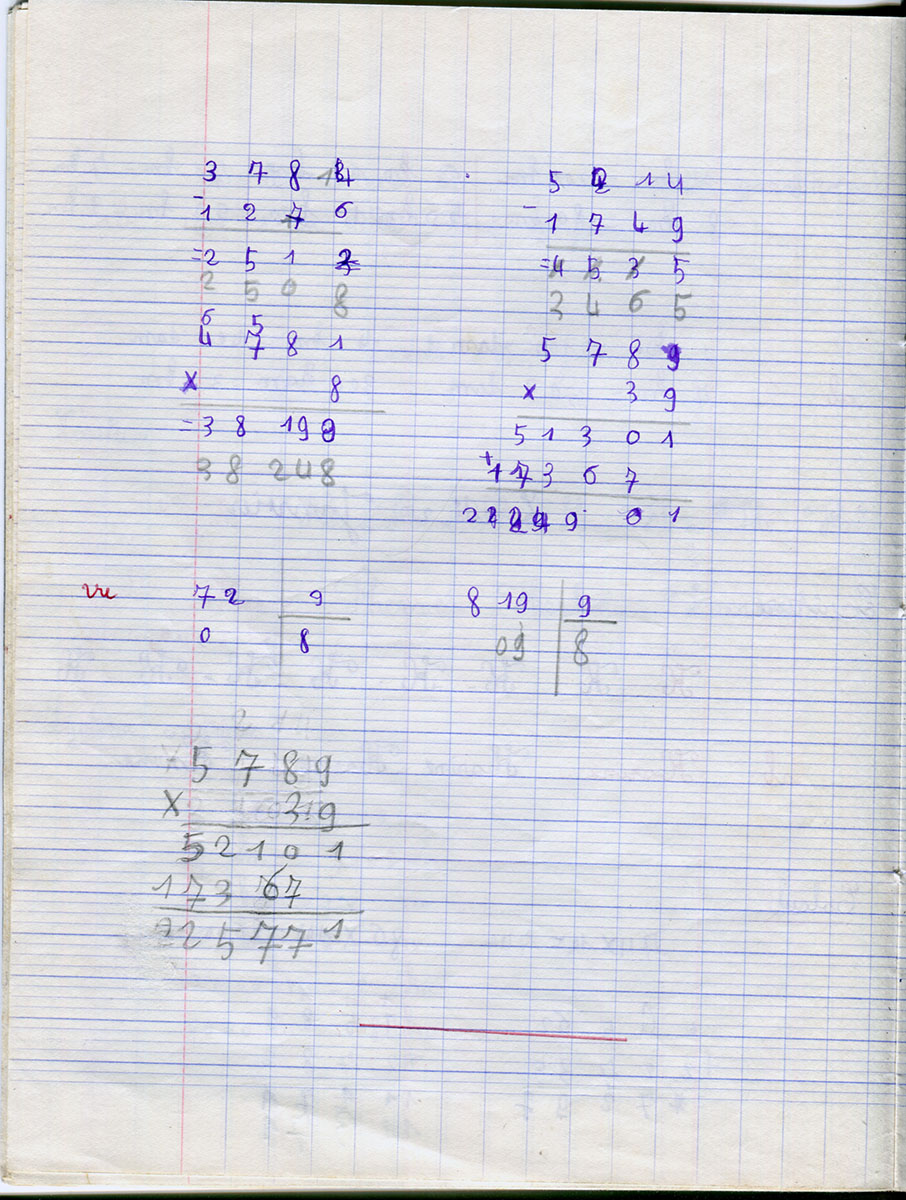 3 7 8 4
- 1 2 7 6
= 2 5 1 2
2 5 0 8
5 2 1 4
- 1 7 4 9
= 4 5 3 5
3 4 6 5
6 5
4 7 8 1
x 8
= 3 8 1 9 9
3 8 2 4 8
5 7 8 9
x 3 9
5 1 3 0 1
+ 1 7 3 6 7
0 1
vu
7 2 9
0 8
8 19 9
09 8
5 7 8 9
x 3 9
5 2 1 0 1
1 7 3 6 7
2 2 5 7 7 1